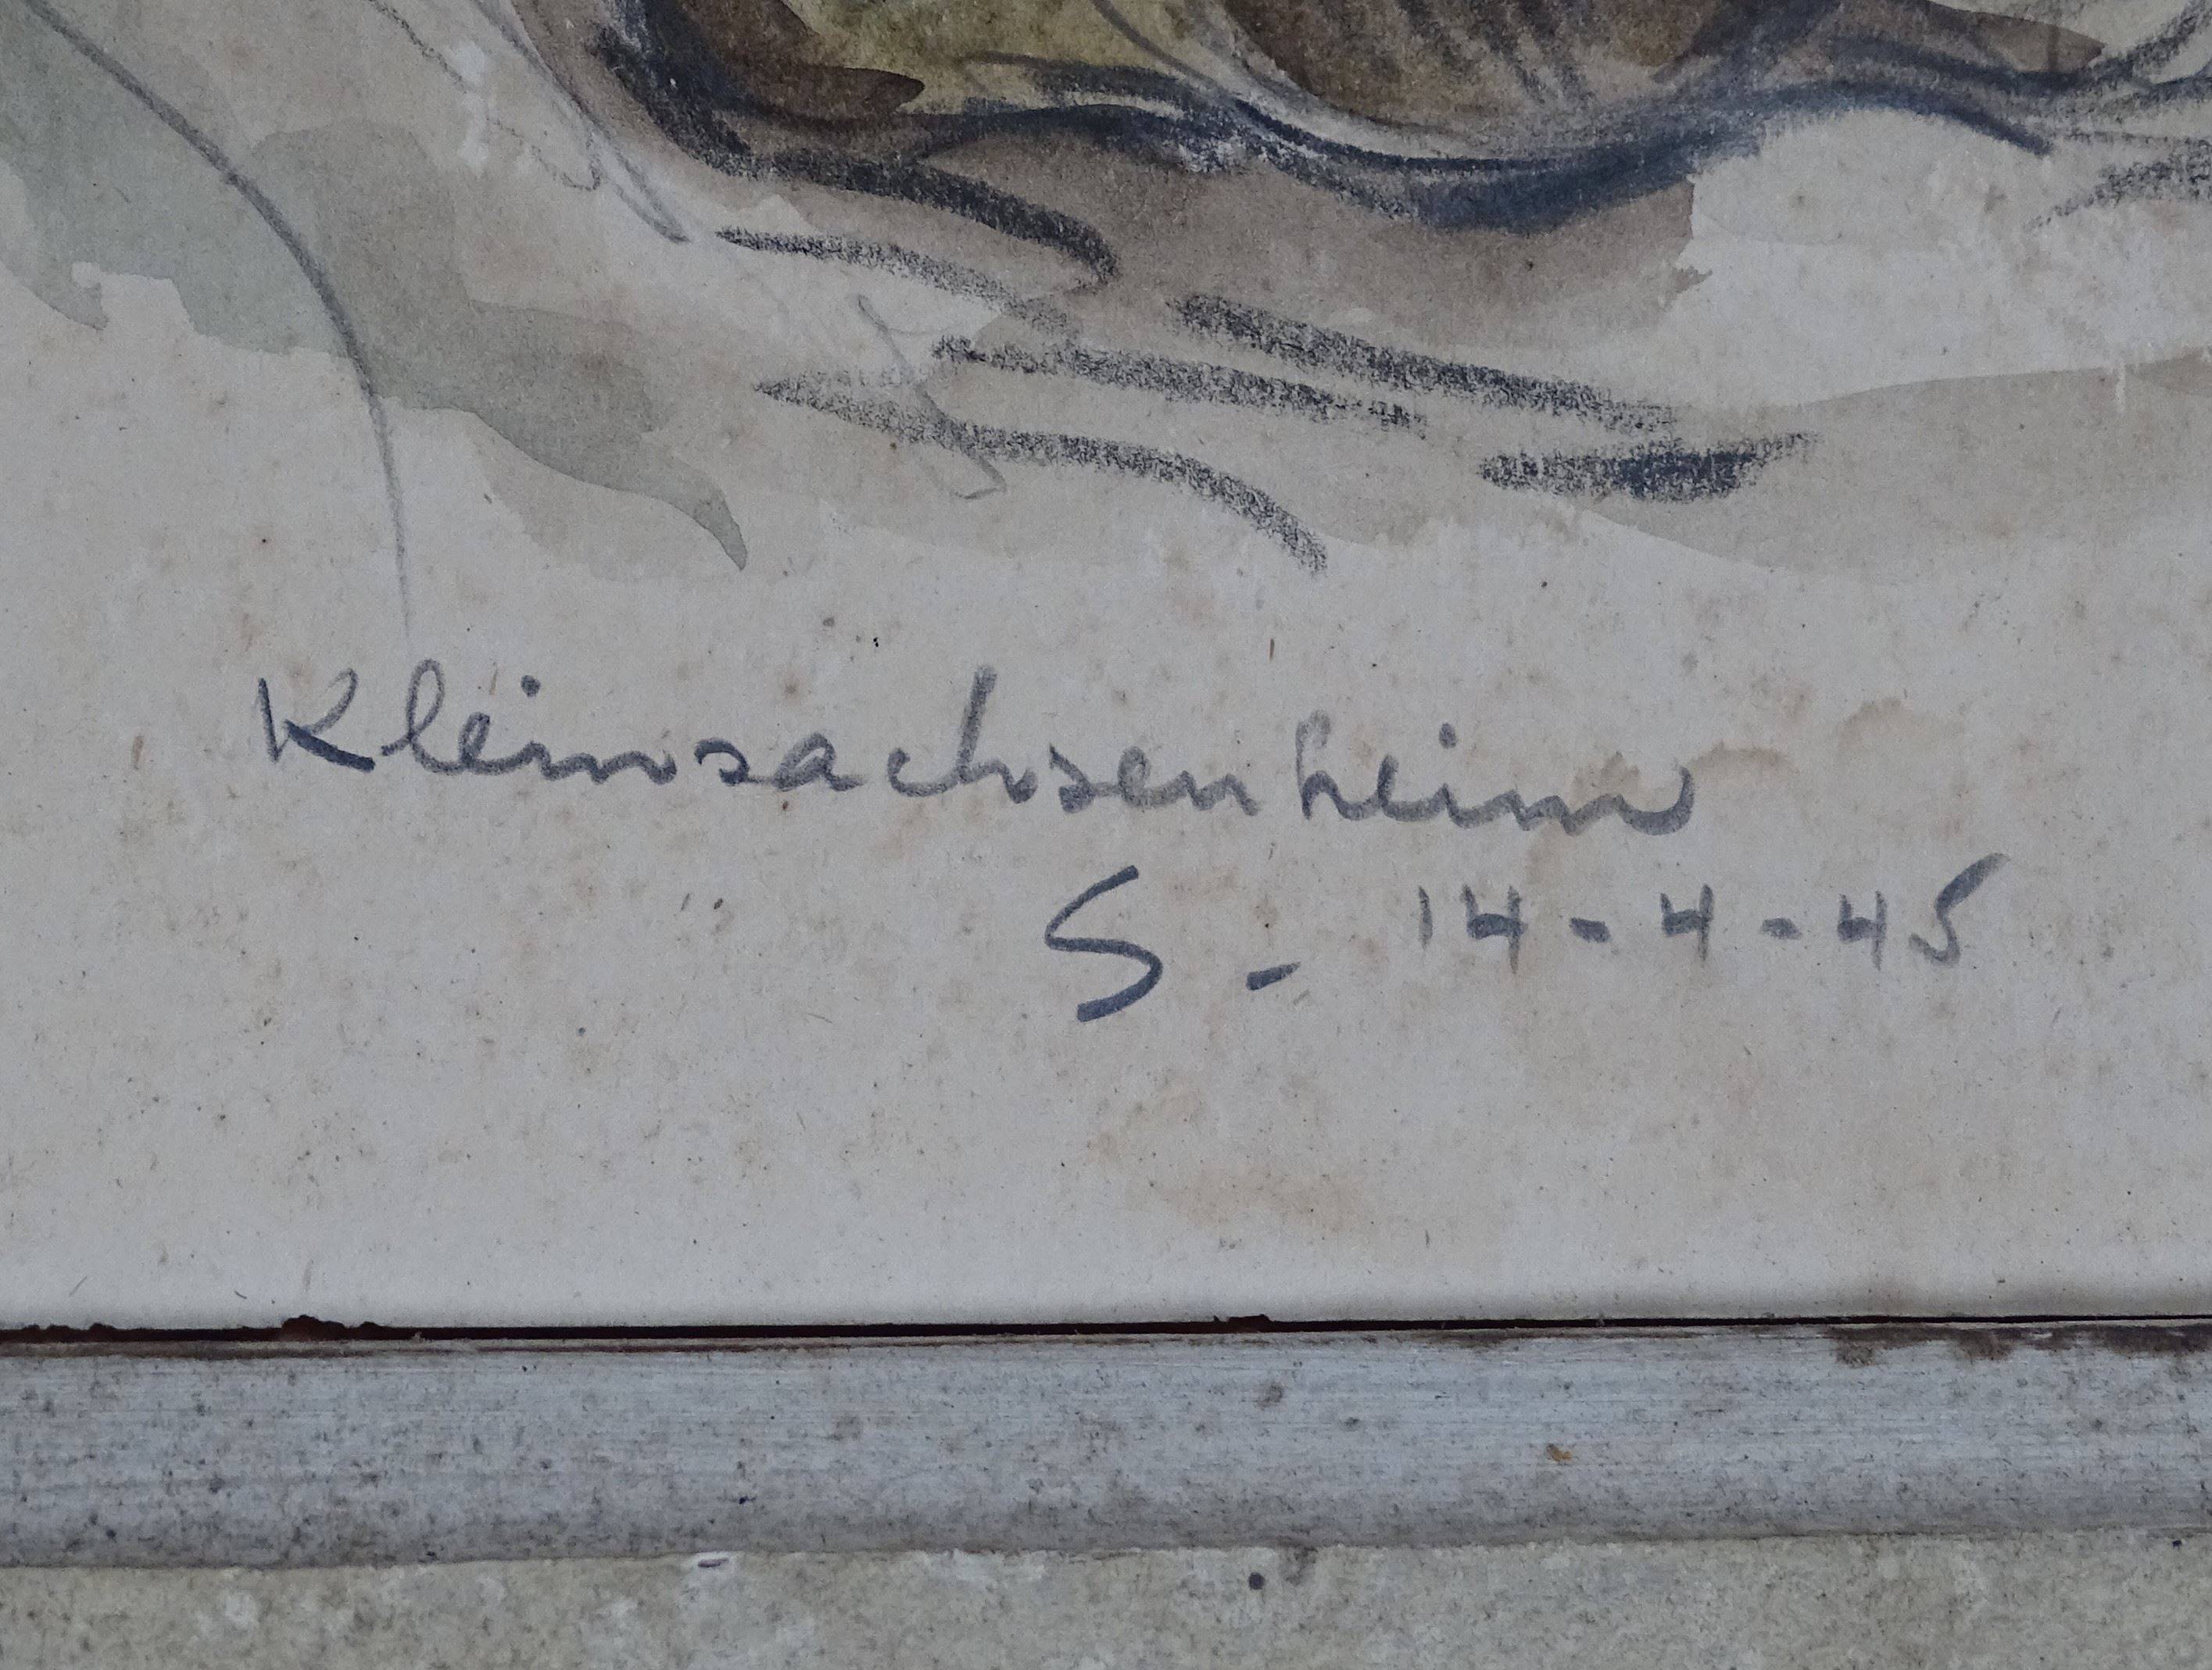 Kleinsachsenheim
S - 14-4-45